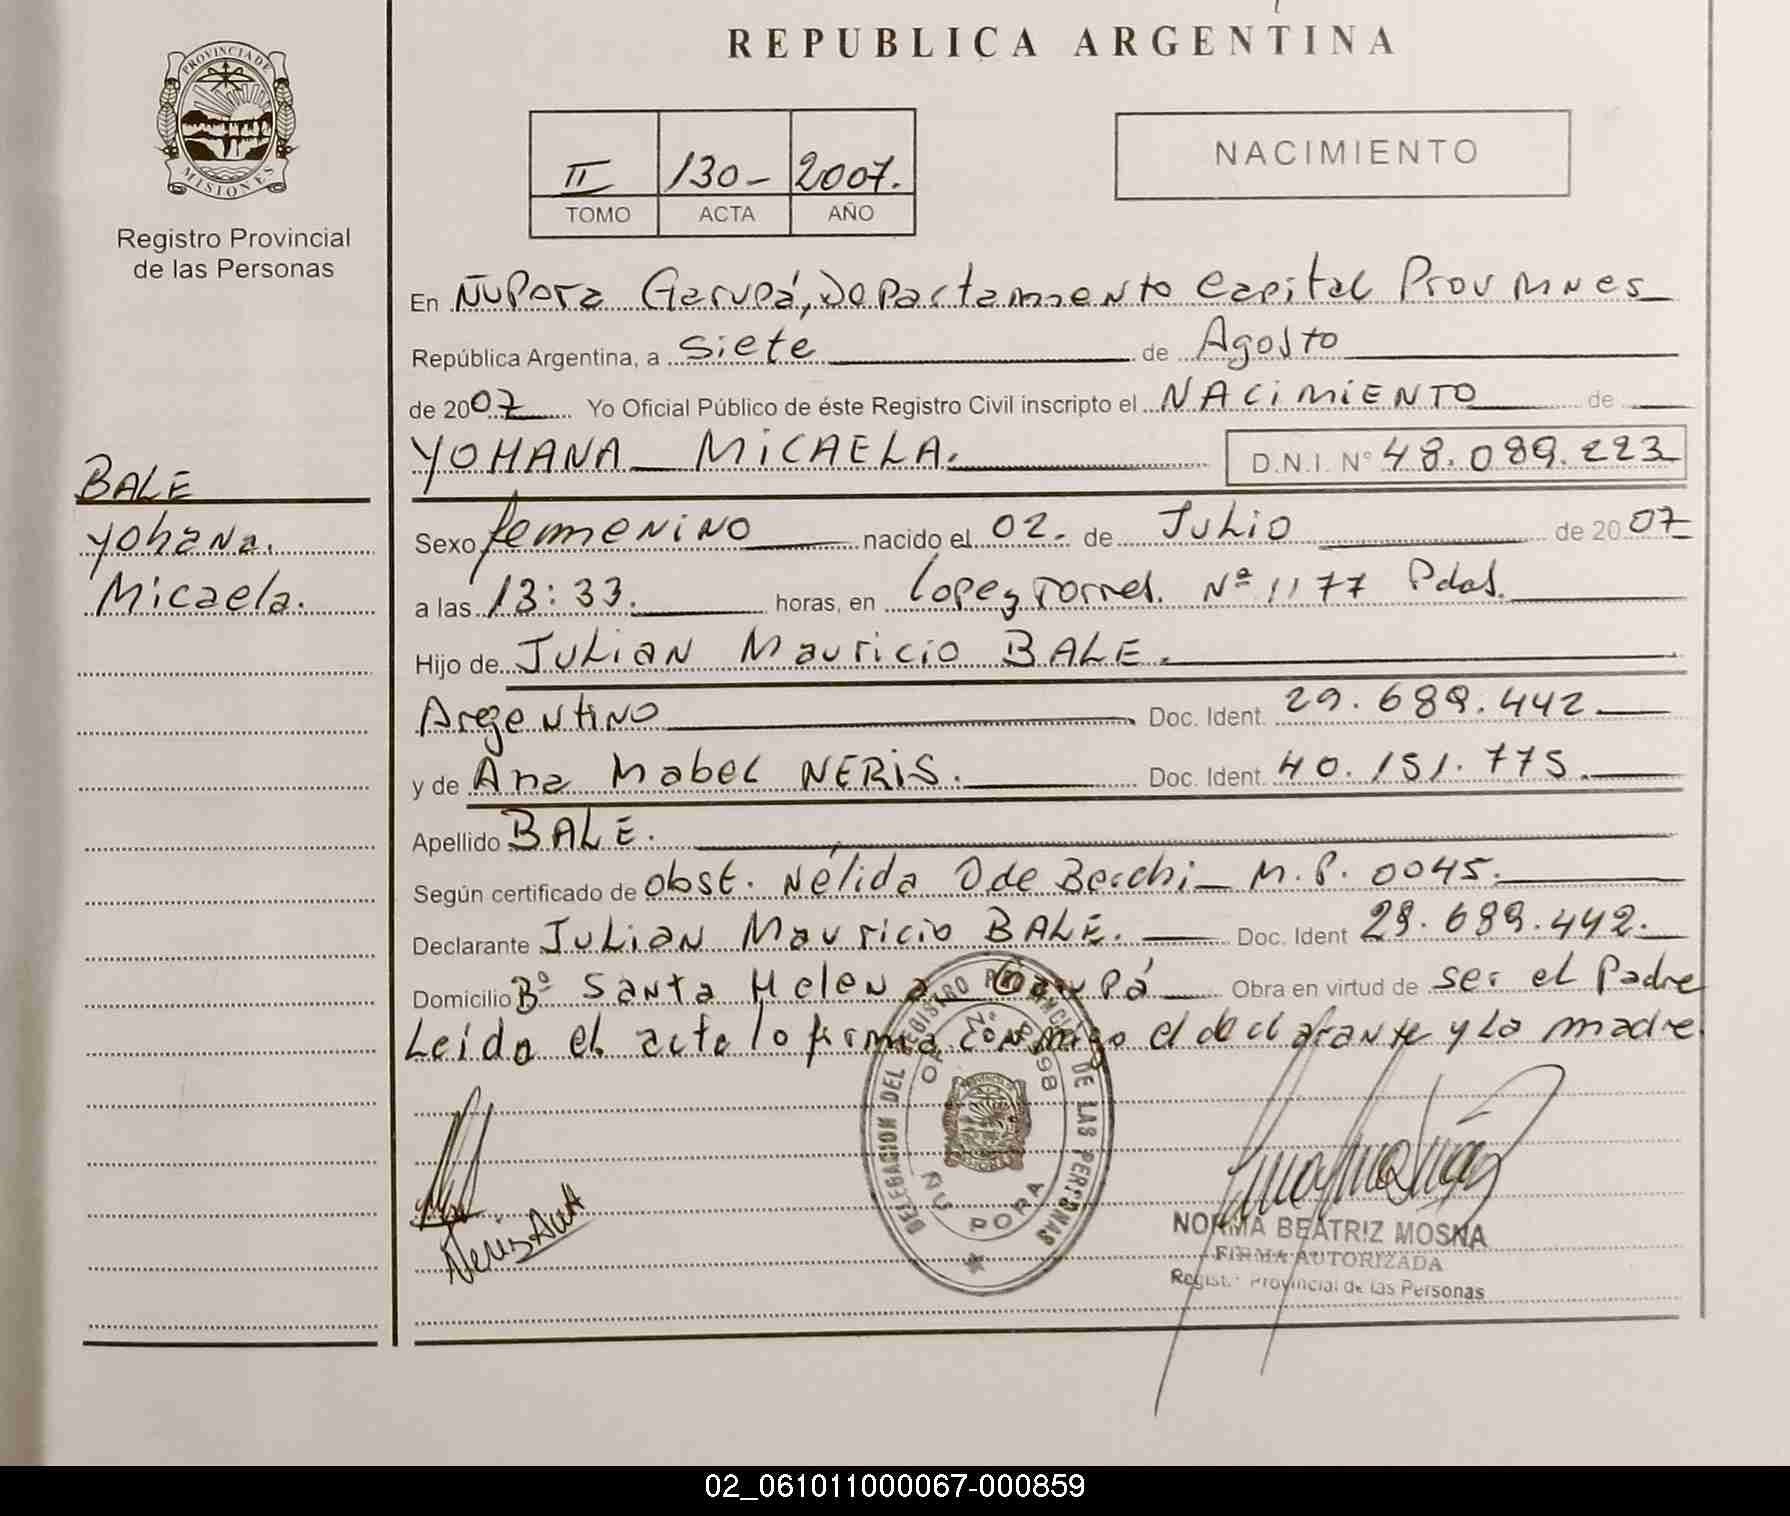 REPUBLICA ARGENTINA
PROVINCIA DE
MISIONES
Registro Provincial
de las Personas
II 130- 2007.
TOMO ACTA AÑO
NACIMIENTO
En Ñu Pora Garupá, Departamento Capital Prov Mnes
República Argentina, a siete de Agosto
de 2007 Yo Oficial Público de éste Registro Civil inscripto el NACIMIENTO de
YOHANA MICAELA. D.N.I. N° 48.089.223
BALE
Yohana.
Micaela.
Sexo femenino nacido el 02. de Julio de 2007
a las 13:33. horas, en Lopez Torres. Nº 1177 Pdas.
Hijo de Julian Mauricio BALE.
Argentino Doc. Ident. 29.689.442.
y de Ana Mabel NERIS. Doc. Ident. 40.151.775.
Apellido BALE.
Según certificado de obst. Nélida O de Becchi M.P. 0045.
Declarante Julian Mauricio BALE. Doc. Ident 29.689.442.
Domicilio Bº Santa Helena Garupá Obra en virtud de ser el Padre
Leida el acta lo firma conmigo el declarante y la madre.
DELEGACION DEL REGISTRO PROVINCIAL DE LAS PERSONAS
ÑU PORA
Neris Ana
NORMA BEATRIZ MOSNA
FIRMA AUTORIZADA
Registro Provincial de las Personas
02_061011000067-000859